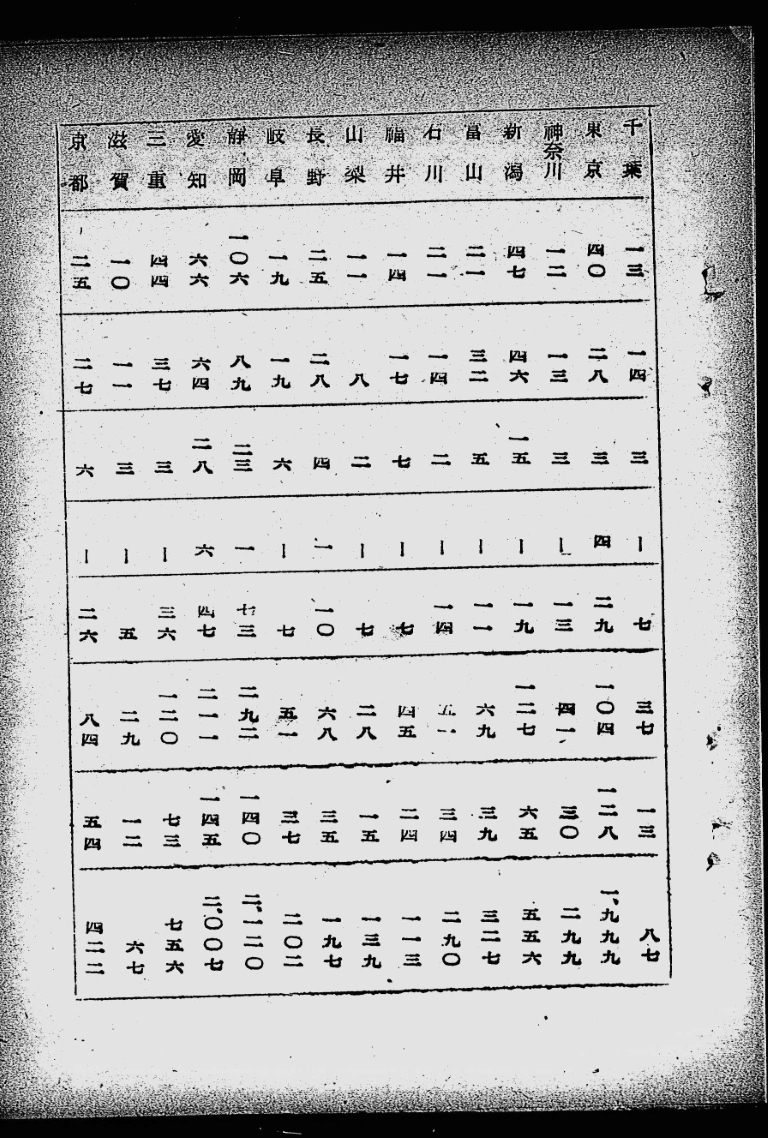 千葉 一三 一四 三 ｜ 七 三七 一三 八七
東京 四〇 二八 三 四 二九 一〇四 一二八 一、九九九
神奈川 一二 一三 三 ｜ 一三 四一 三〇 二九九
新潟 四七 四六 一五 ｜ 一九 一二七 六五 五五六
富山 二一 三二 五 ｜ 一一 六九 三九 三二七
石川 二一 一四 二 ｜ 一四 五一 三四 二九〇
福井 一四 一七 七 ｜ 七 四五 二四 一一三
山梨 一一 八 二 ｜ 七 二八 一五 一三九
長野 二五 二八 四 一 一〇 六八 三五 一九七
岐阜 一九 一九 六 ｜ 七 五一 三七 二〇二
静岡 一〇六 八九 二三 一 七三 二九二 一四〇 二、一二〇
愛知 六六 六四 二八 六 四七 二一一 一四五 二、〇〇七
三重 四四 三七 三 ｜ 三六 一二〇 七三 七五六
滋賀 一〇 一一 三 ｜ 五 二九 一二 六七
京都 二五 二七 六 ｜ 二六 八四 五四 四二二